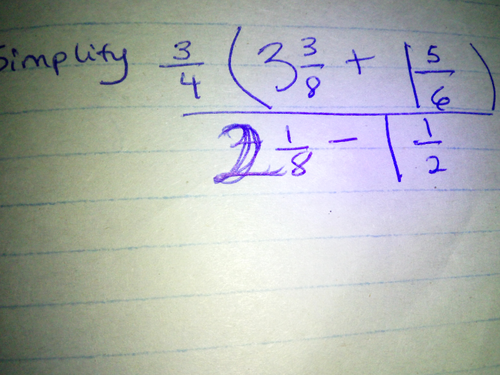 Simplify 3/4 (3 3/8 + 1 5/6)
2 1/8 - 1 1/2